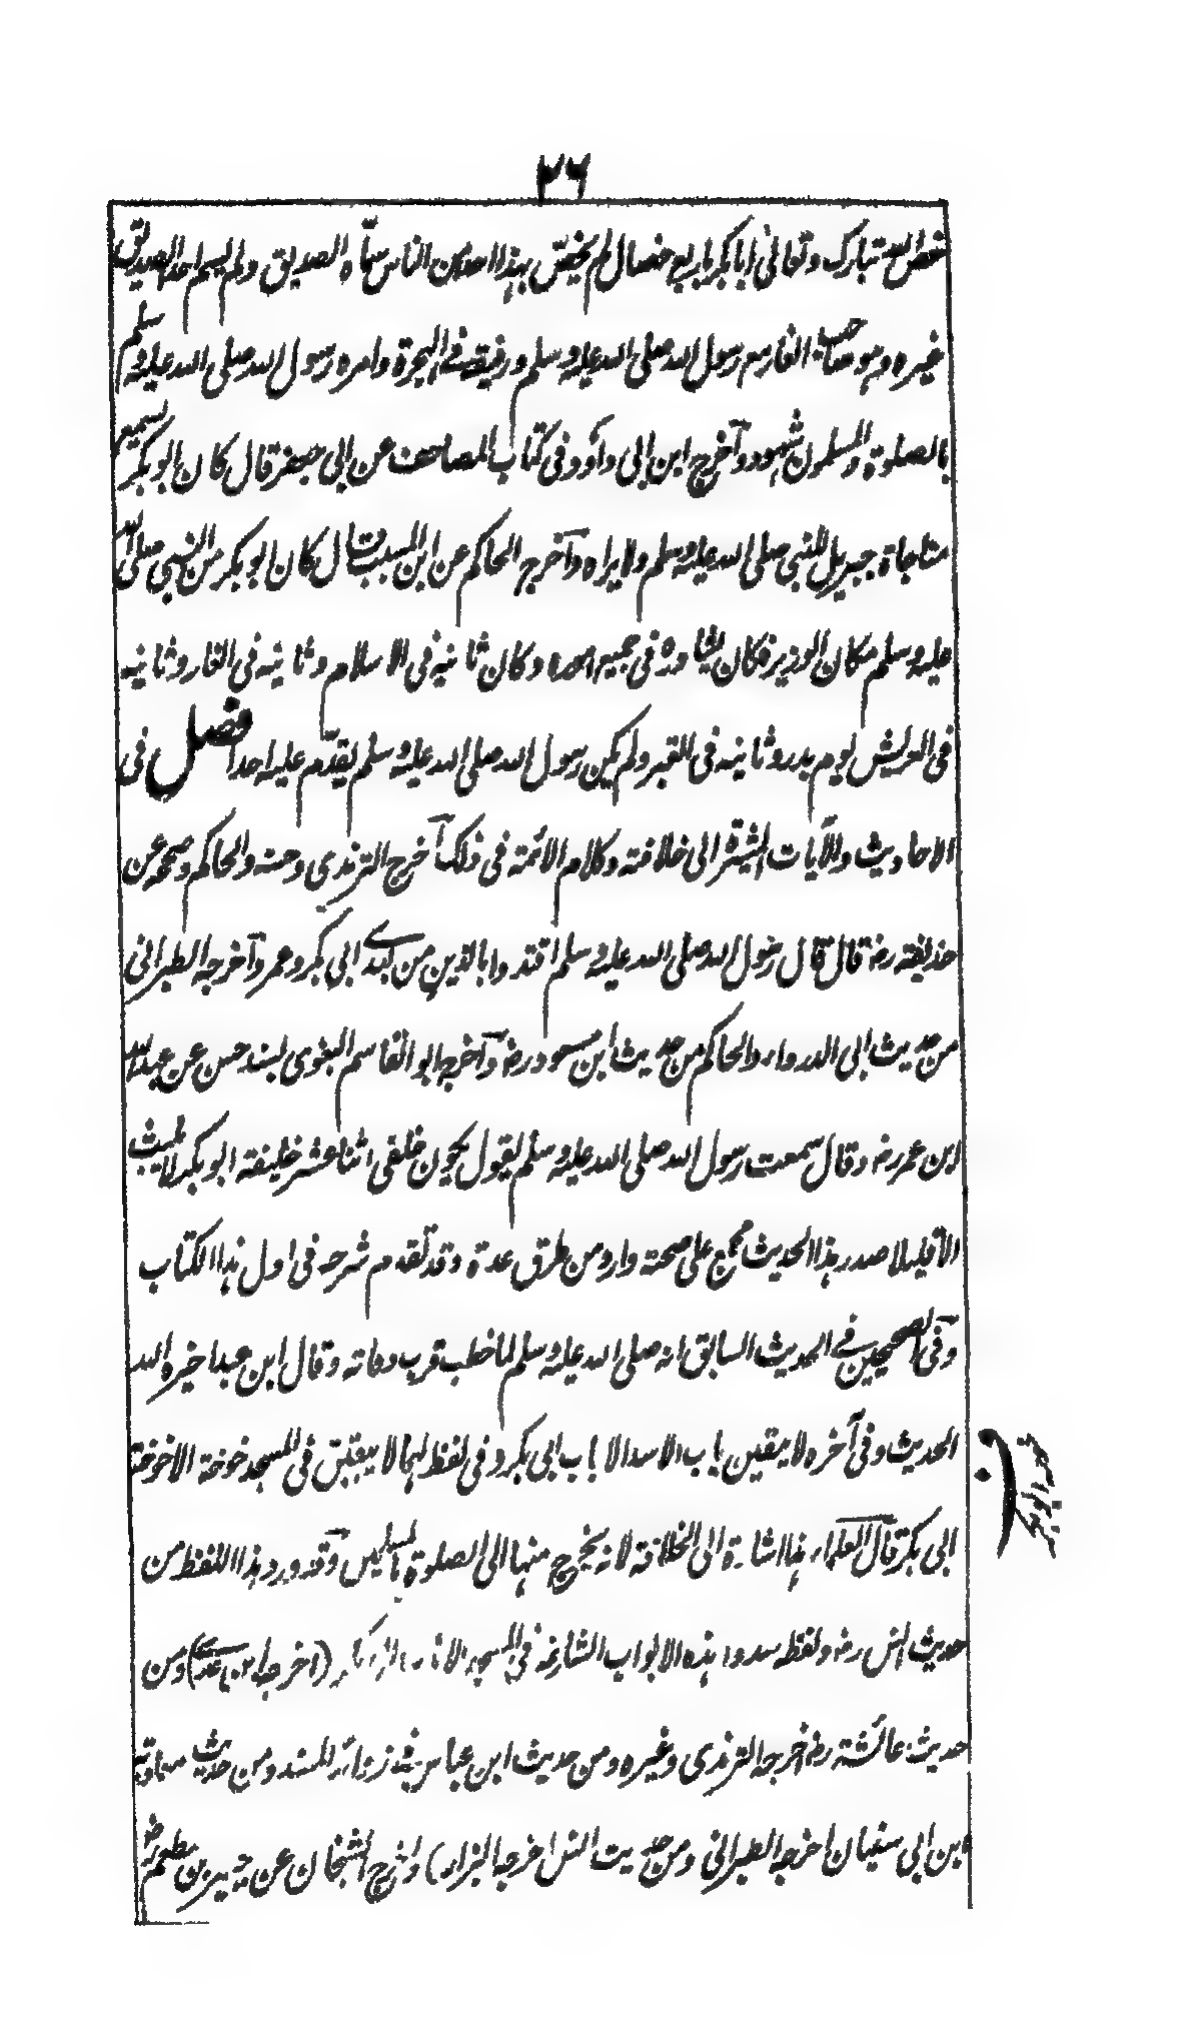 ٣٦
خص الله تبارك وتعالى ابا بكر باربع خصال لم يخص بهذا احدا من الناس سماه الصديق ولم يسم احدا الصديق
غيره وهو صاحب الغار مع رسول الله صلى الله عليه وسلم ورفيقه في الهجرة وامره رسول الله صلى الله عليه وسلم
بالصلوة والمسلمون شهود وآخرج ابن ابى داؤد فى كتاب المصاحف عن ابى جعفر قال كان ابو بكر يسمع
مناجاة جبريل للنبى صلى الله عليه وسلم ولا يراه وآخرج الحاكم عن ابن المسيب قال كان ابو بكر من النبى صلى الله
عليه وسلم مكان الوزير فكان يشاوره فى جميع اموره وكان ثانيه فى الاسلام وثانيه فى الغار وثانيه
فى العريش يوم بدر وثانيه فى القبر ولم يكن رسول الله صلى الله عليه وسلم يقدّم عليه احدا فصل فى
الاحاديث والآيات المشيرة الى خلافته وكلام الائمة فى ذلك آخرج الترمذى وحسنه والحاكم وصححه عن
حذيفة رض قال قال رسول الله صلى الله عليه وسلم اقتدوا بالذين من بعدى ابى بكر وعمر وآخرجه الطبرانى
من حديث ابى الدرداء والحاكم من حديث ابن مسعود رض وآخرج ابو القاسم البغوى بسند حسن عن عبد الله
ابن عمر رض وقال سمعت رسول الله صلى الله عليه وسلم يقول يكون خلفى اثنا عشر خليفة ابو بكر لا يلبث
الا قليلا صدر هذا الحديث مجمع على صحته وارد من طرق عدة وقد تقدم شرحه فى اول هذا الكتاب
وفى الصحيحين فى الحديث السابق انه صلى الله عليه وسلم لما خطب قرب وفاته وقال ان عبدا خيره الله
الحديث وفى آخره لا يبقين باب الا سد الا باب ابى بكر وفى لفظ لهما لا يبقين فى المسجد خوخة الا خوخة
ابى بكر قال العلماء هذا اشارة الى الخلافة لانه يخرج منها الى الصلوة بالمسلمين وقد ورد هذا اللفظ من
حديث انس رض ولفظه سدوا هذه الابواب الشارعة فى المسجد الا (اخرجه ابن عدى) ومن
حديث عائشة رض اخرجه الترمذى وغيره ومن حديث ابن عباس فى زوائد المسند ومن حديث معاوية
ابن ابى سفيان اخرجه الطبرانى ومن حديث انس اخرجه البزار) واخرج الشيخان عن جبير بن مطعم رض
خوخة ابو بكر